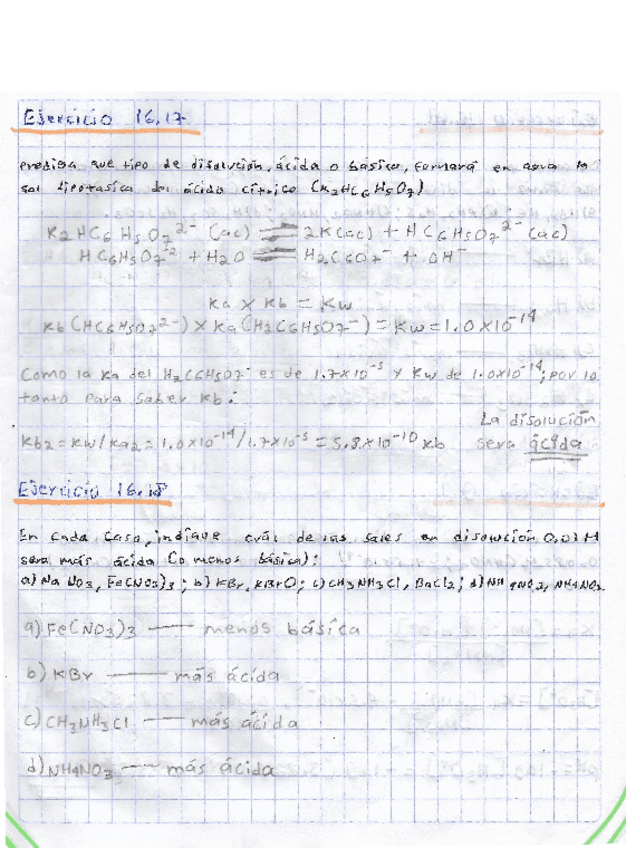 Ejercicio 16.17
prediga que tipo de disolución, ácida o básica, formará en agua la
sal dipotasica del ácido cítrico (K2HC6H5O7)
K2HC6H5O7²⁻ (ac) ⇌ 2K(ac) + HC6H5O7²⁻ (ac)
HC6H5O7²⁻ + H2O ⇌ H2C6O7⁻ + OH⁻
Ka x Kb = Kw
Kb(HC6H5O7²⁻) x Ka(H2C6H5O7⁻) = Kw = 1.0x10⁻¹⁴
Como la Ka del H2C6H5O7⁻ es de 1.7x10⁻⁵ y Kw de 1.0x10⁻¹⁴; por lo
tanto para saber Kb:
La disolución
Kb2 = Kw/Ka2 = 1.0x10⁻¹⁴/1.7x10⁻⁵ = 5.8x10⁻¹⁰ Kb sera ácida
Ejercicio 16.18
En cada caso, indique cuál de las sales en disolución 0.01M
sera más ácida (o menos básica):
a) NaNO3, Fe(NO3)3; b) KBr, KBrO; c) CH3NH3Cl, BaCl2; d) NH4NO2, NH4NO3.
a) Fe(NO3)3 — menos básica
b) KBr — más ácida
c) CH3NH3Cl — más ácida
d) NH4NO3 — más ácida